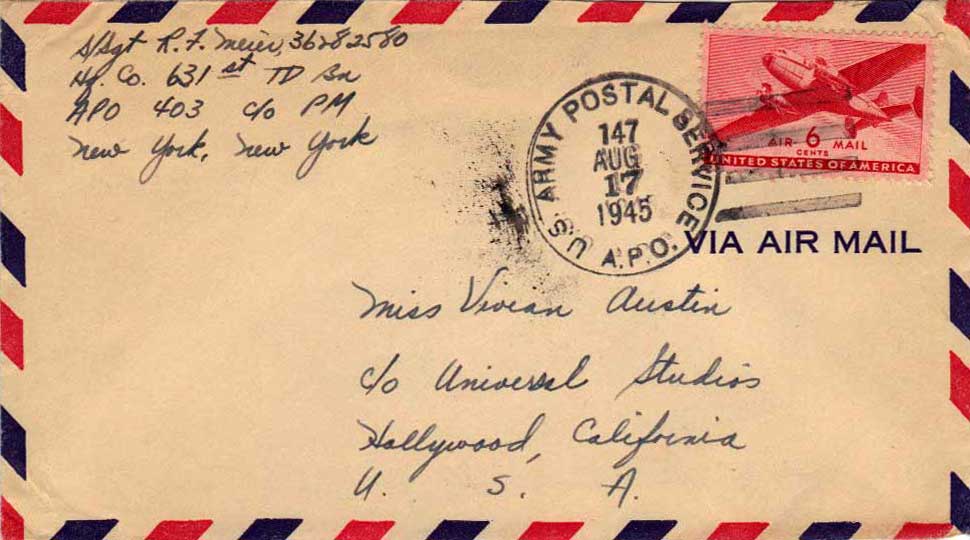 S/Sgt R. F. Meier 36282580
Hq. Co. 631st TD Bn
APO 403 c/o PM
New York, New York
ARMY POSTAL SERVICE
147
AUG
17
1945
U.S. A.P.O.
AIR-6 MAIL
CENTS
UNITED STATES OF AMERICA
VIA AIR MAIL
Miss Vivian Austin
c/o Universal Studios
Hollywood, California
U. S. A.